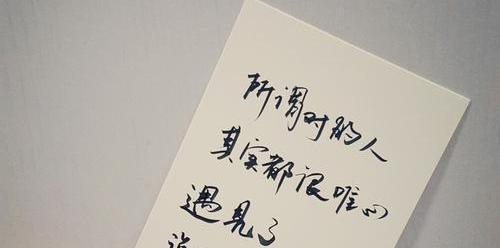 所谓对的人
其实都很唯心
遇见了